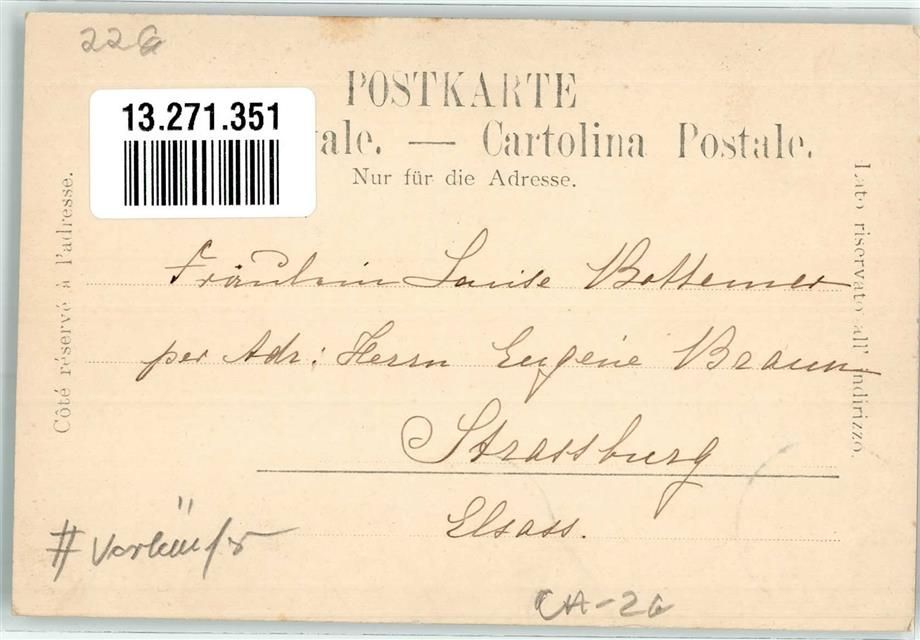 226
POSTKARTE
13.271.351
ale. — Cartolina Postale.
Nur für die Adresse.
Côté réservé à l'adresse.
Lato riservato all' Indirizzo.
Fräulein Louise Bottemer
per Adr: Herrn Eugène Braun
Strassburg
Elsass.
# Vorläufer
CH-26